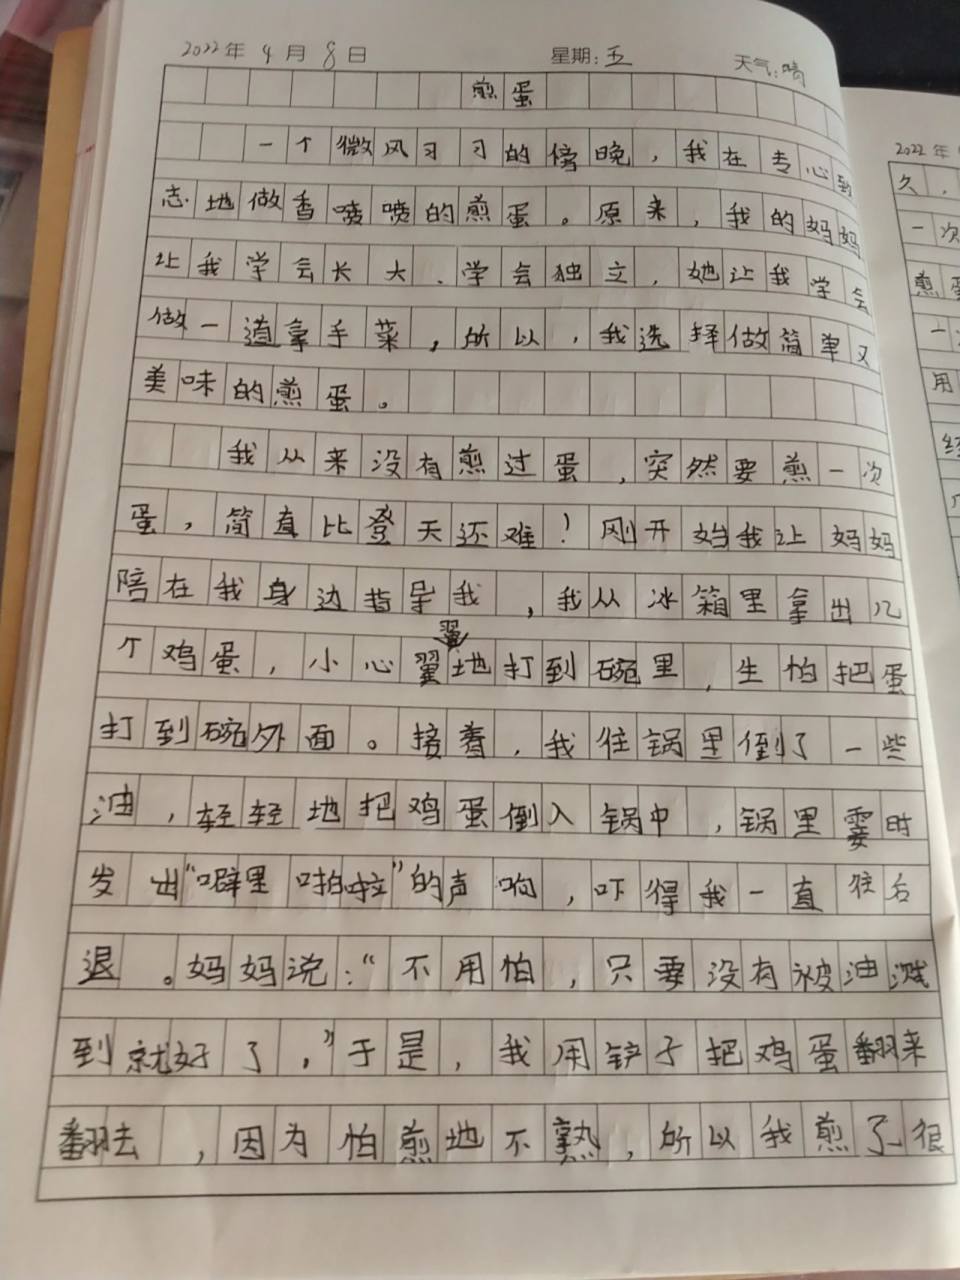 2022年4月8日 星期:五 天气:晴
煎蛋
一个微风习习的傍晚,我在专心致
志地做香喷喷的煎蛋。原来,我的妈妈
让我学会长大、学会独立,她让我学会
做一道拿手菜,所以,我选择做简单又
美味的煎蛋。
我从来没有煎过蛋,突然要煎一次
蛋,简直比登天还难!刚开始我让妈妈
陪在我身边指导我,我从冰箱里拿出几
个鸡蛋,小心翼翼地打到碗里,生怕把蛋
打到碗外面。接着,我往锅里倒了一些
油,轻轻地把鸡蛋倒入锅中,锅里霎时
发出“噼里啪啦”的声响,吓得我一直往后
退。妈妈说:“不用怕,只要没有被油溅
到就好了,”于是,我用铲子把鸡蛋翻来
翻去,因为怕煎地不熟,所以我煎了很
2022年
久,
一次
煎蛋
一
用